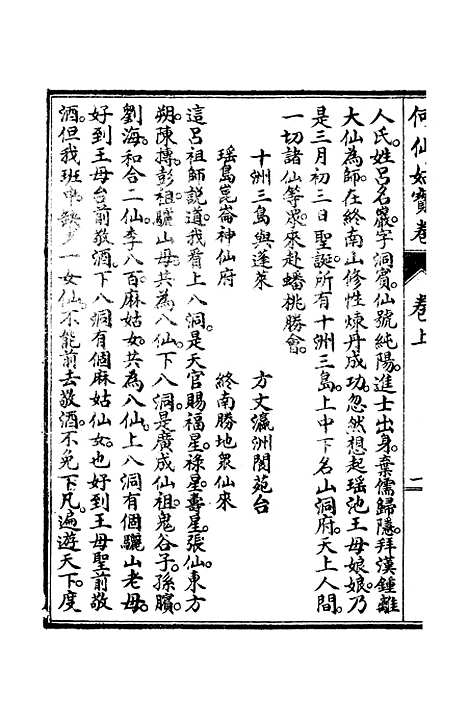 何仙姑寶卷 卷上 二
人氏。姓呂名巖。字洞賓。仙號純陽。進士出身。棄儒歸隱。拜漢鍾離
大仙為師。在終南山修性煉丹成功。忽然想起瑤池王母娘娘。乃
是三月初三日聖誕。所有十洲三島。上中下名山洞府。天上人間。
一切諸仙等眾。來赴蟠桃勝會。
十洲三島與蓬萊 方丈瀛洲閬苑台
瑤島崑崙神仙府 終南勝地眾仙來
這呂祖師說道。我看上八洞。是天官賜福星。祿星。壽星。張仙。東方
朔。陳摶。彭祖。驪山母。共為八仙。下八洞。是廣成仙祖。鬼谷子。孫臏。
劉海。和合二仙。李八百。麻姑女。共為八仙。上八洞有個驪山老母。
好到王母台前敬酒。下八洞有個麻姑仙女。也好到王母聖前敬
酒。但我班中缺少一女仙。不能前去敬酒。不免下凡。遍遊天下。度